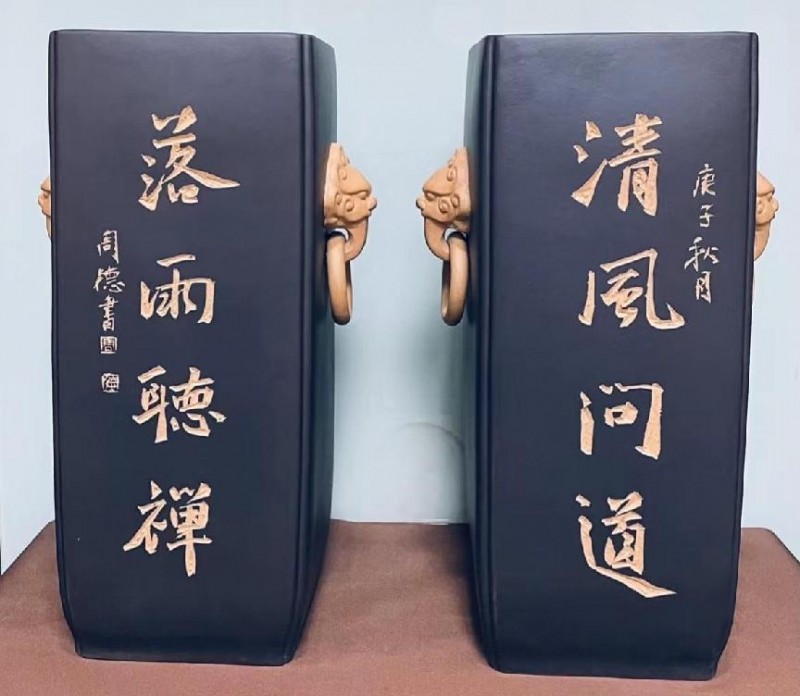 庚子秋月
清風問道
落雨聽禪
周德書